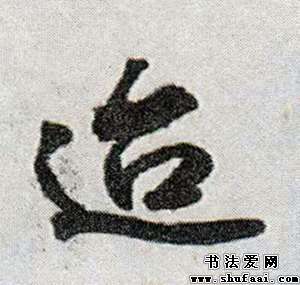 迨
书法爱网
www.shufaai.com